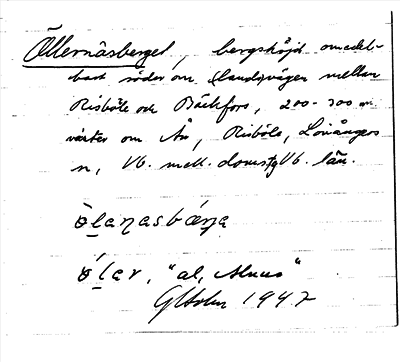 Öllernäsberget, bergshöjd omedel-
bart söder om landsvägen mellan
Risböle och Bäckfors, 200-300 m
väster om Ån, Risböle, Lövångers
sn, Vb. mell. doms. Vb. län.
ö̀lanasbárja
ö́lar, "al, Alnus"
G Holm 1947